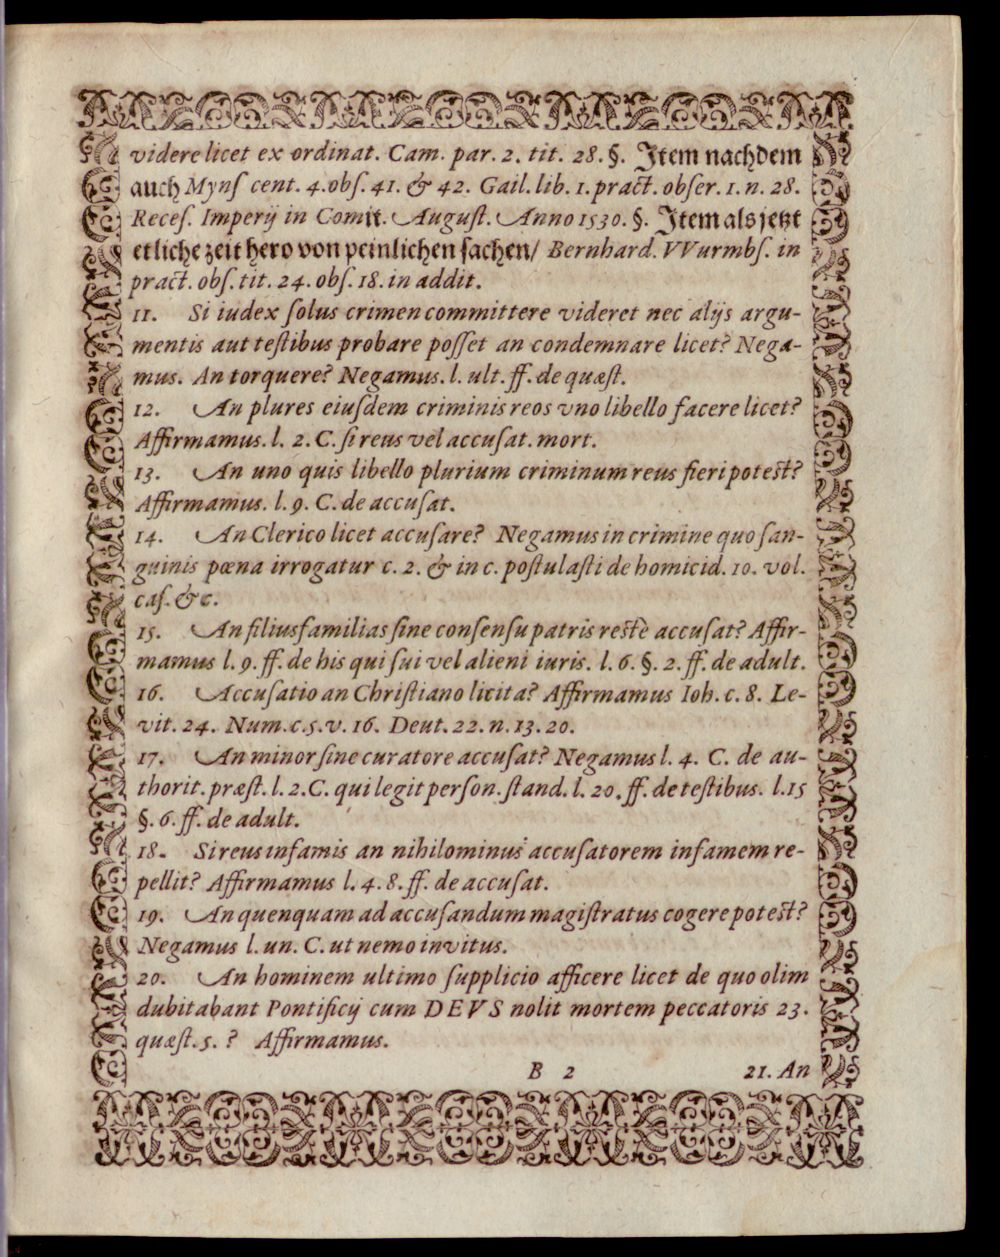 videre licet ex ordinat. Cam. par. 2. tit. 28. §. Item nachdem
auch Mynſ cent. 4. obſ. 41. & 42. Gail. lib. 1. pract. obſer. 1. n. 28.
Receſ. Imperij in Comit. Auguſt. Anno 1530. §. Item als jetzt
etliche zeit hero von peinlichen ſachen/ Bernhard. VVurmbſ. in
pract. obſ. tit. 24. obſ. 18. in addit.
11. Si iudex ſolus crimen committere videret nec alijs argu-
mentis aut teſtibus probare poſſet an condemnare licet? Nega-
mus. An torquere? Negamus. l. ult. ff. de quæſt.
12. An plures eiuſdem criminis reos vno libello facere licet?
Affirmamus. l. 2. C. ſi reus vel accuſat. mort.
13. An uno quis libello plurium criminum reus fieri potest?
Affirmamus. l. 9. C. de accuſat.
14. An Clerico licet accuſare? Negamus in crimine quo ſan-
guinis pœna irrogatur c. 2. & in c. poſtulaſti de homicid. 10. vol.
caſ. &c.
15. An filiusfamilias ſine conſenſu patris rectè accuſat? Affir-
mamus l. 9. ff. de his qui ſui vel alieni iuris. l. 6. §. 2. ff. de adult.
16. Accuſatio an Chriſtiano licita? Affirmamus Ioh. c. 8. Le-
vit. 24. Num. c. 5. v. 16. Deut. 22. n. 13. 20.
17. An minor ſine curatore accuſat? Negamus l. 4. C. de au-
thorit. præſt. l. 2. C. qui legit perſon. ſtand. l. 20. ff. de teſtibus. l. 15
§. 6. ff. de adult.
18. Si reus infamis an nihilominus accuſatorem infamem re-
pellit? Affirmamus l. 4. 8. ff. de accuſat.
19. An quenquam ad accuſandum magiſtratus cogere potest?
Negamus l. un. C. ut nemo invitus.
20. An hominem ultimo ſupplicio afficere licet de quo olim
dubitabant Pontificij cum DEVS nolit mortem peccatoris 23.
quæſt. 5. ? Affirmamus.
B 2 21. An